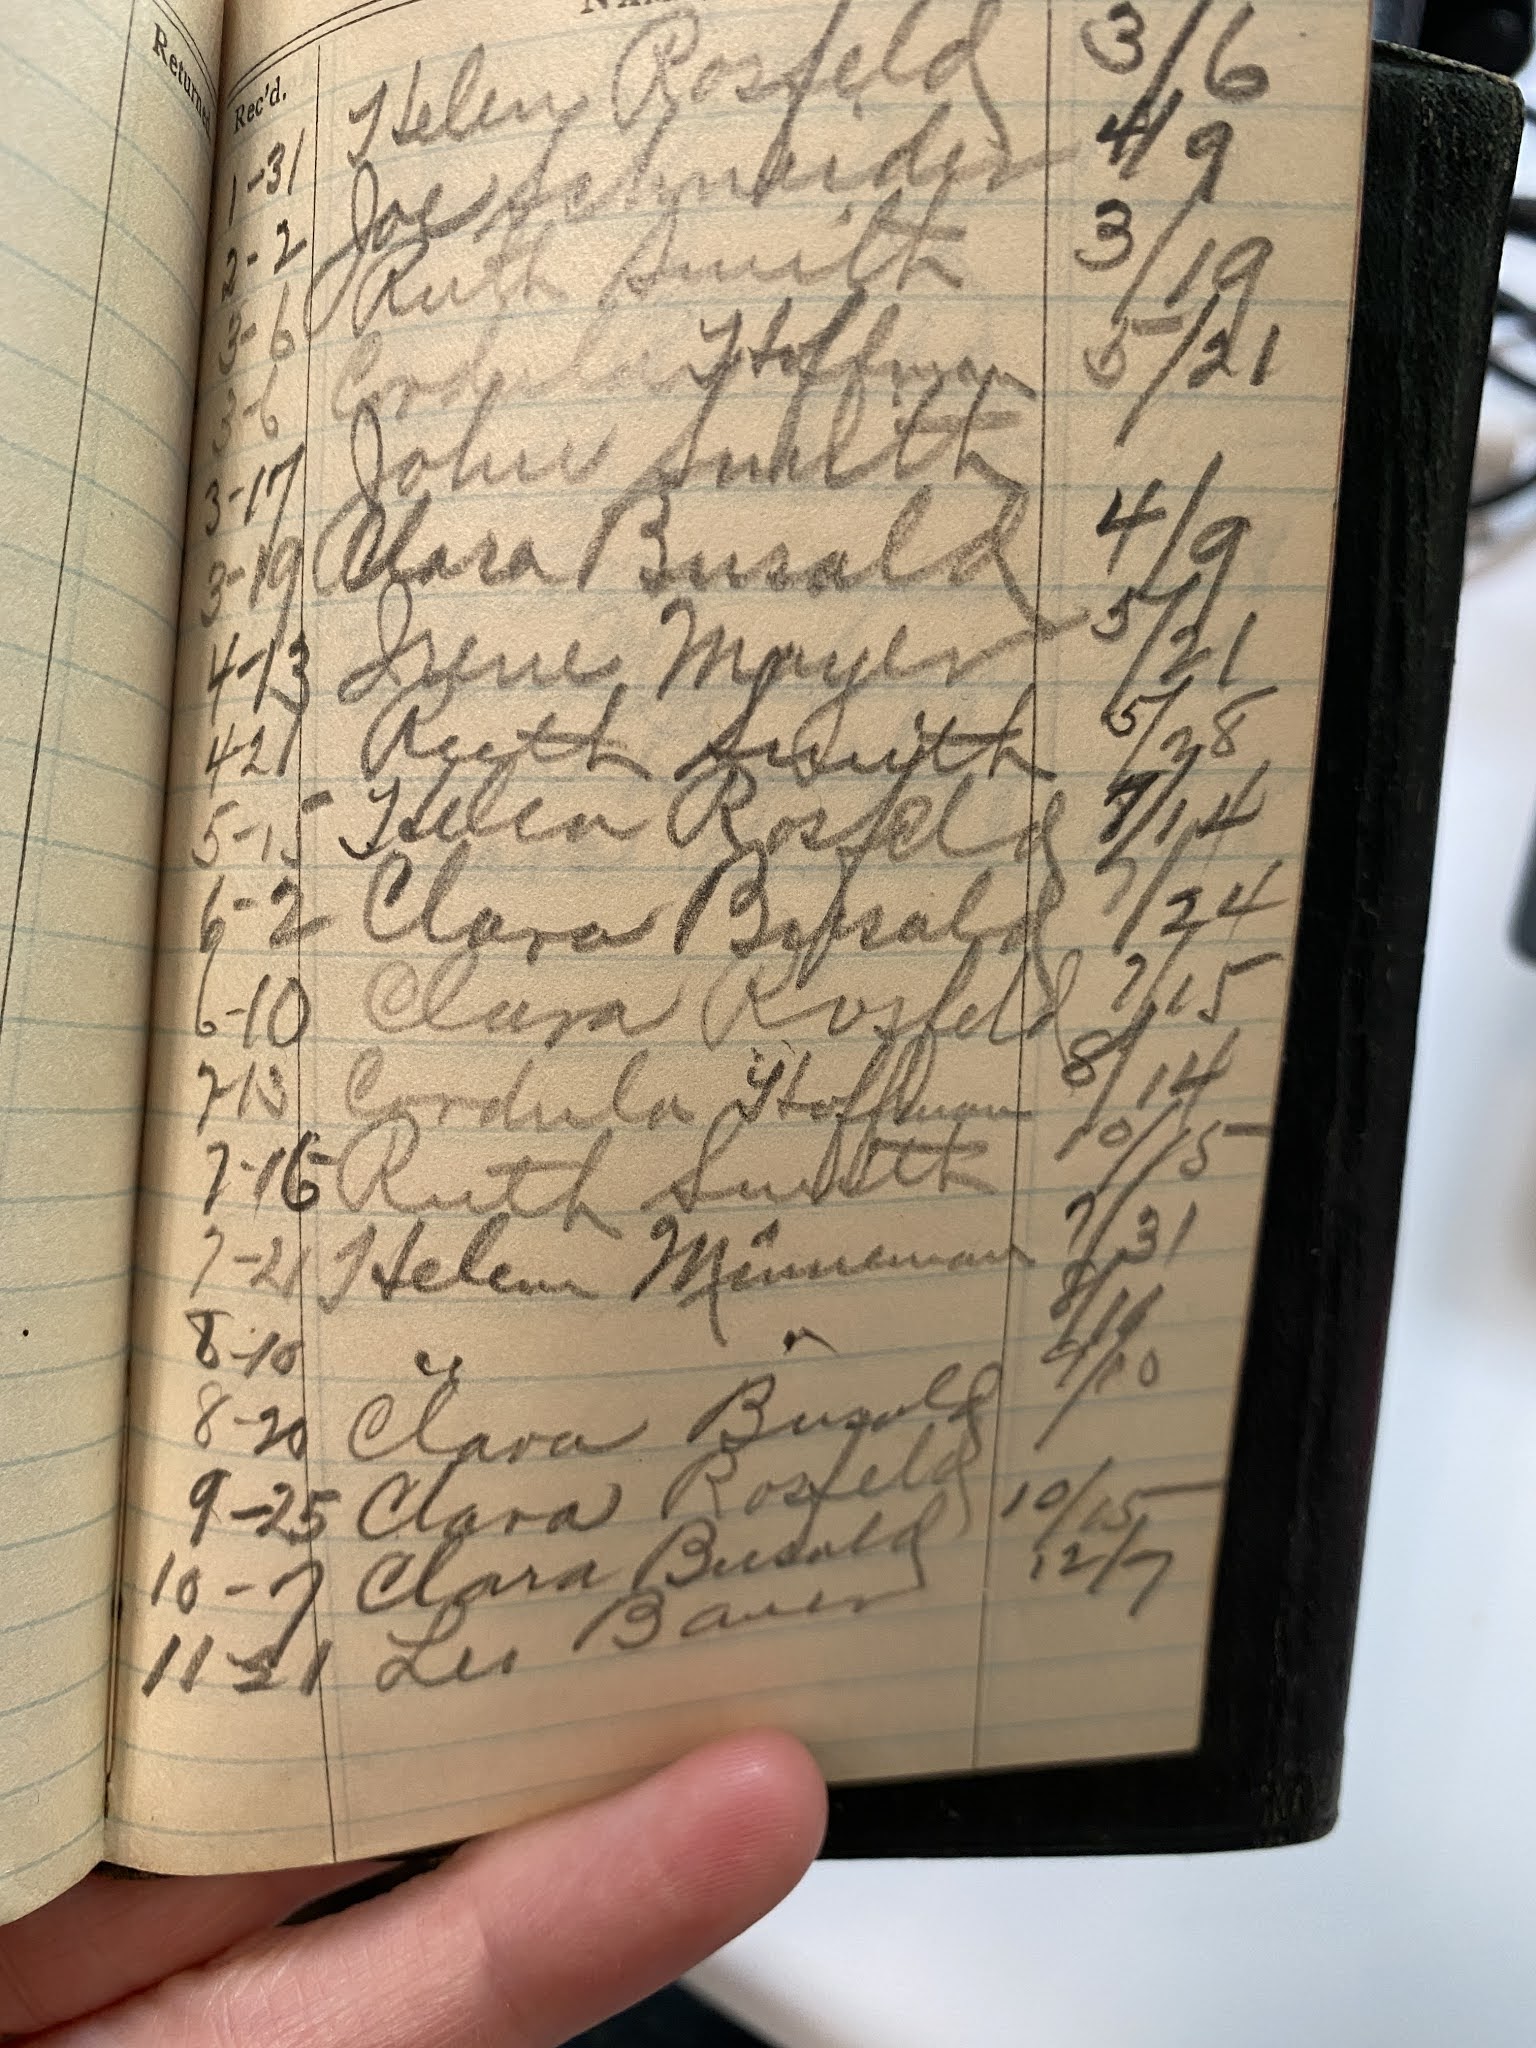 Returned
Rec'd.
1-31 Helen Rosfeld 3/6
2-2 Joe Schneider 4/9
3-6 Ruth Smith 3/19
3-6 Cordula Hoffman 5/21
3-17 John Smith
3-19 Clara Busald 4/9
4-13 Irene Mayer 5/21
4-21 Ruth Smith 5/28
5-15 Helen Rosfeld 7/14
6-2 Clara Busald 7/24
6-10 Clara Rosfeld 7/15
7-13 Cordula Hoffman 8/14
7-16 Ruth Smith 10/15
7-21 Helen Minneman 7/31
8-10 " " 8/16
8-20 Clara Busald 9/10
9-25 Clara Rosfeld
10-7 Clara Busald 10/15
11-21 Leo Bauer 12/7